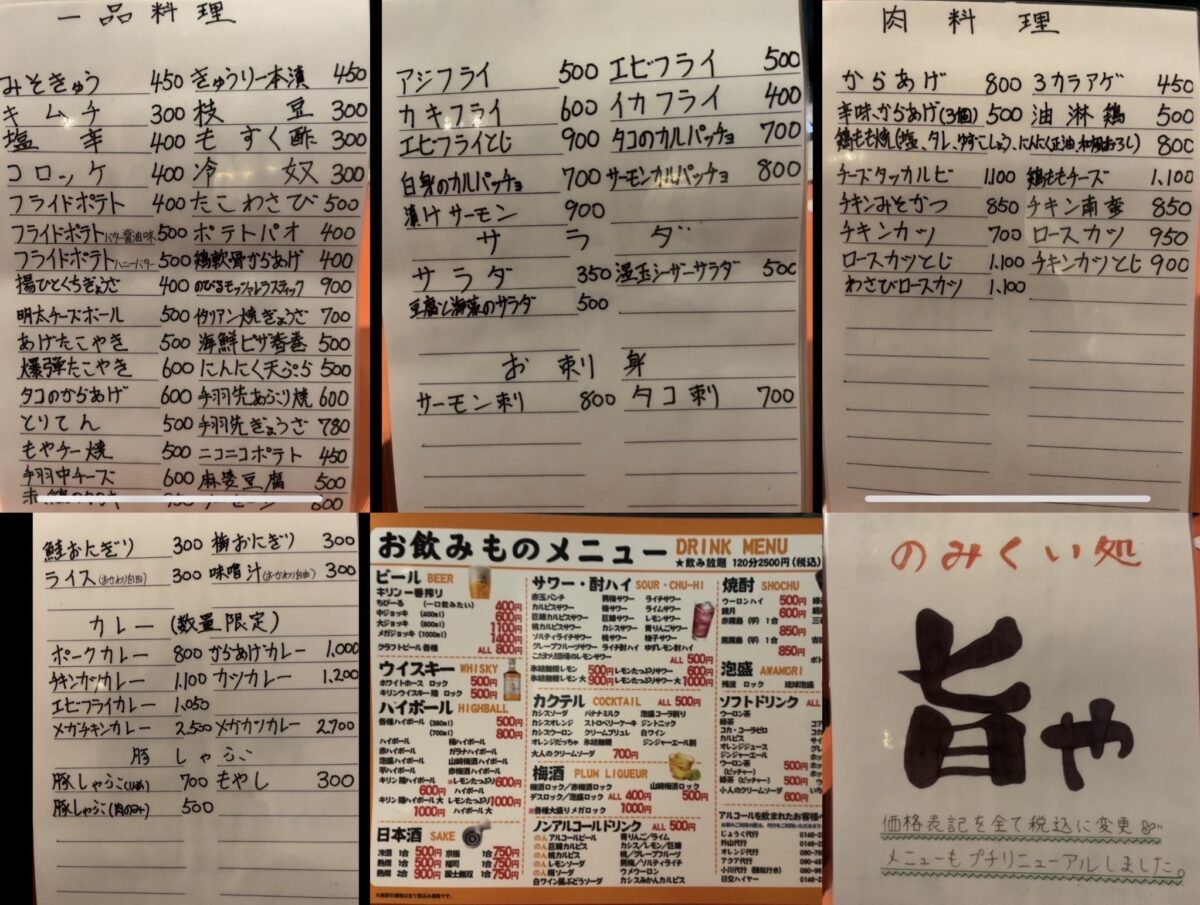 一品料理
みそきゅう 450 きゅうり一本漬 450
キムチ 300 枝豆 300
塩辛 400 もずく酢 300
コロッケ 400 冷奴 300
フライドポテト 400 たこわさび 500
フライドポテト バター醤油味 500 ポテトパオ 400
フライドポテト ハニーバター 500 鶏軟骨からあげ 400
揚ひとくちぎょうざ 400 のびるモッツァレラスティック 900
明太チーズボール 500 イタリアン焼ぎょうざ 700
あげたこやき 500 海鮮ピザ春巻 500
爆弾たこやき 600 にんにく天ぷら 500
タコのからあげ 600 手羽先あぶり焼 600
とりてん 500 手羽先ぎょうざ 780
もやチー焼 500 ニコニコポテト 450
手羽中チーズ 600 麻婆豆腐 500
アジフライ 500 エビフライ 500
カキフライ 600 イカフライ 400
エビフライとじ 900 タコのカルパッチョ 700
白身のカルパッチョ 700 サーモンカルパッチョ 800
漬けサーモン 900
サラダ
サラダ 350 温玉シーザーサラダ 500
豆腐と海藻のサラダ 500
お刺身
サーモン刺 800 タコ刺 700
肉料理
からあげ 800 3カラアゲ 450
辛味からあげ(3個) 500 油淋鶏 500
鶏もも焼(塩、タレ、ゆずこしょう、にんにく正油、和風おろし) 800
チーズタッカルビ 1.100 鶏ももチーズ 1.100
チキンみそかつ 850 チキン南蛮 850
チキンカツ 700 ロースカツ 950
ロースカツとじ 1.100 チキンカツとじ 900
わさびロースカツ 1.100
鮭おにぎり 300 梅おにぎり 300
ライス(おかわり自由) 300 味噌汁(おかわり自由) 300
カレー(数量限定)
ポークカレー 800 からあげカレー 1.000
チキンカツカレー 1.100 カツカレー 1.200
エビフライカレー 1.050
メガチキンカレー 2.500 メガカツカレー 2.700
豚しゃぶ
豚しゃぶ 700 もやし 300
豚しゃぶ(肉のみ) 500
お飲みものメニュー DRINK MENU
★飲み放題 120分2500円(税込)
ビール BEER
キリン一番搾り
ちびーる (一口飲みたい) 400円
中ジョッキ (400ml) 600円
大ジョッキ (800ml) 1100円
メガジョッキ (1000ml) 1400円
クラフトビール各種 ALL 800円
ウイスキー WHISKY
ホワイトホース ロック 500円
キリンウイスキー陸 ロック 500円
ハイボール HIGHBALL
各種ハイボール (380ml) 500円
(700ml) 800円
ハイボール 梅ハイボール
赤ハイボール ガラナハイボール
泡盛ハイボール 山崎梅酒ハイボール
芋ハイボール 赤梅酒ハイボール
キリン 陸ハイボール ※レモンたっぷり600円
600円 ハイボール
キリン 陸ハイボール 大 レモンたっぷり1000円
1000円 ハイボール 大
日本酒 SAKE
冷酒 1合 500円 京極 1合 750円
熱燗 1合 500円 福司 1合 750円
熱燗 2合 900円 国士無双 1合 750円
サワー・酎ハイ SOUR・CHU-HI
赤玉パンチ 男梅サワー ライチサワー
カルピスサワー 梅サワー ライムサワー
巨峰カルピスサワー 巨峰サワー レモンサワー
桃カルピスサワー カシスサワー 青りんごサワー
ソルティライチサワー 桃サワー 柚子サワー
グレープフルーツサワー ライチ酎ハイ ゆずレモン酎ハイ
こだわり酒場のレモンサワー ALL 500円
氷結無糖レモン 500円 レモンたっぷりサワー 600円
氷結無糖レモン 大 900円 レモンたっぷりサワー 大 1000円
カクテル COCKTAIL ALL 500円
カシスソーダ バナナミルク 泡盛コーラ割り
カシスオレンジ ストロベリーケーキ ジントニック
カシスウーロン クリームブリュレ ウォッカ
オレンジだっちゃ 氷結無糖 ジンジャーエール割
大人のクリームソーダ 700円
梅酒 PLUM LIQUEUR
梅酒ロック/赤梅酒ロック 山崎梅酒ロック
デスロック/泡盛ロック ALL 400円 500円
※各種大盛りメガロック 1000円
ノンアルコールドリンク ALL 500円
のんアルコールビール 青りんご/ライム
のん巨峰カルピス カシス/レモン/巨峰
のん桃カルピス 桃/グレープフルーツ
のんレモンソーダ 男梅/ソルティライチ
のん梅ソーダ ウメウーロン
白ワイン風ぶどうソーダ カシスみかんカルピス
焼酎 SHOCHU
ウーロンハイ 500円
鏡月 600円
850円
850円
泡盛 AWAMORI
残波 ロック 琉球泡盛
ソフトドリンク ALL
ウーロン茶
緑茶
コカ・コーラゼロ
カルピス
オレンジジュース
ジンジャーエール
ウーロン茶 500円
(ピッチャー)
緑茶 500円
(ピッチャー)
小人のクリームソーダ 600円
アルコールを飲まれたお客様へ
じょうく代行
外山代行
オレンジ代行
アクア代行
小川代行
日交ハイヤー
のみくい処
旨や
価格表記を全て税込に変更
メニューもプチリニューアルしました。